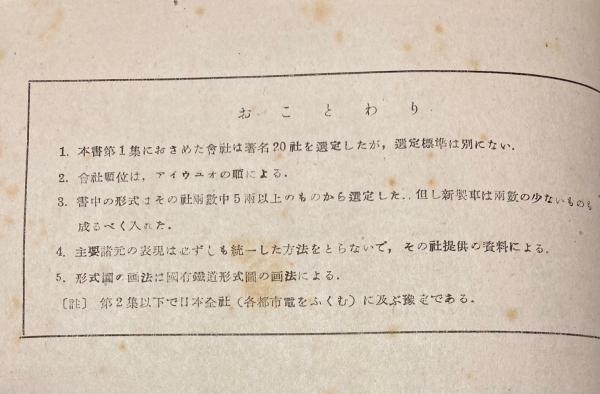 おことわり
1. 本書第1集におさめた會社は著名20社を選定したが，選定標準は別にない．
2. 會社順位は，アイウエオの順による．
3. 書中の形式はその社両数中5両以上のものから選定した．但し新製車は両数の少ないものも
成るべく入れた．
4. 主要諸元の表現は必ずしも統一した方法をとらないで，その社提供の資料による．
5. 形式圖の画法は國有鐵道形式圖の画法による．
〔註〕 第2集以下で日本全社（各都市電をふくむ）に及ぶ豫定である．